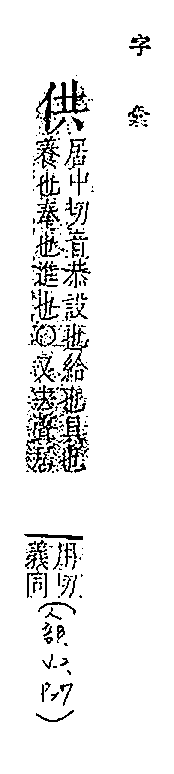 字彙
供
居中切音恭設也給也具也
養也奉也進也○又去聲居
用切
義同
(人部、V.2、P.27)